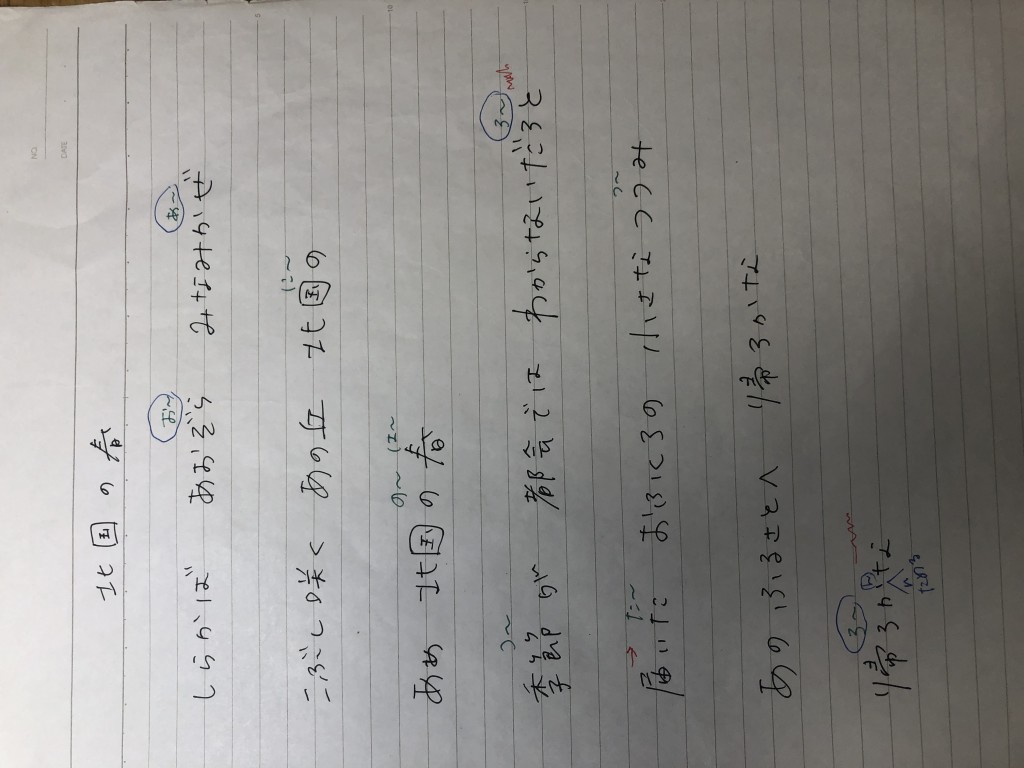 NO.
DATE
北国の春
お〜 あ〜
しらかば あおぞら みなみかぜ
に〜
こぶし咲く あの丘 北国の
の〜 は〜
あめ 北国の春
つ〜 ろ〜
季節が 都会では わからないだろと
→ た〜 つ〜
届いた おふくろの 小さなつつみ
あのふるさとへ 帰ろかな
ろ〜
帰ろかな